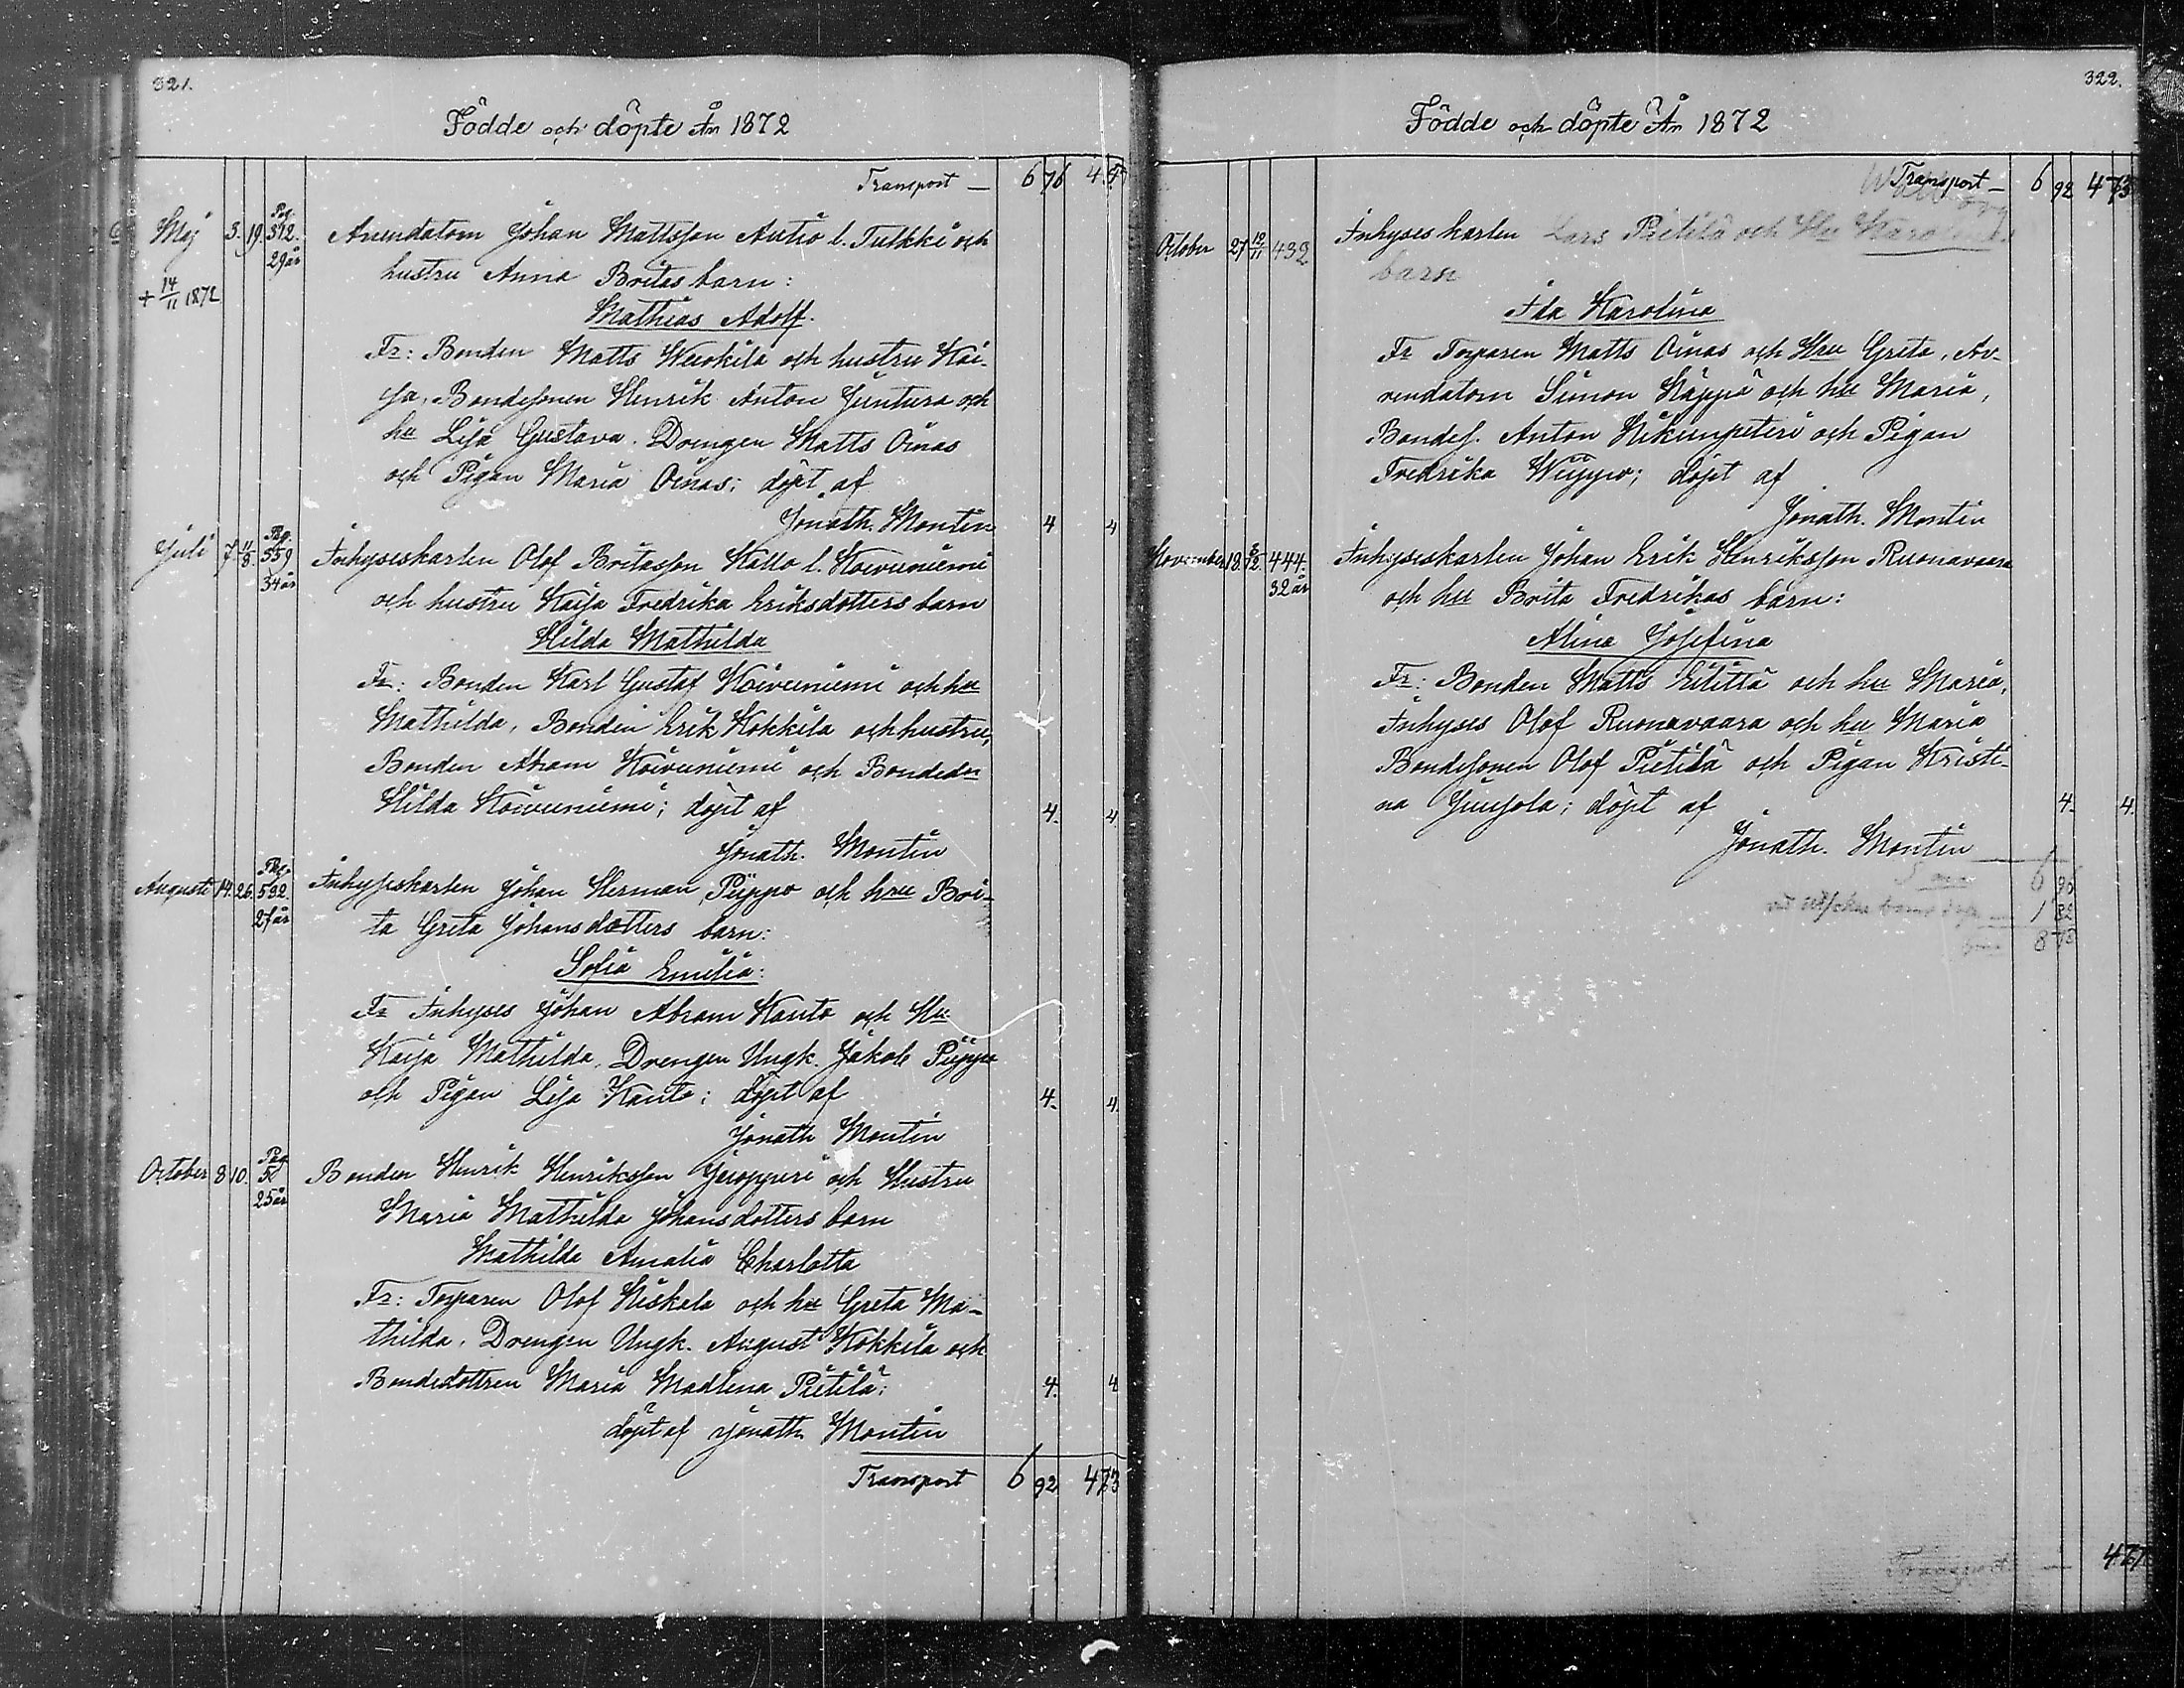 321.
Födde och döpte År 1872
Transport — 6 76 4 57
Maj 5. 19. Pag. 312. 29 år Arrendatorn Johan Mattsson Autio l. Tulkki och
hustru Anna Britas barn:
+ 14/11 1872
Mathias Adolf.
Fr: Bonden Matts Wuokila och hustru Kai-
sa, Bondesonen Henrik Anton Juntura och
hu Lisa Gustava. Drengen Matts Oinas
och Pigan Maria Oinas; döpt af
Jonath. Montin 4 4
Juli 7. 11/8. Pag. 559 34 år Inhyseskarlen Olof Britasson Kallo l. Koivuniemi
och hustru Kaisa Fredrika Eriksdotters barn
Hilda Mathilda
Fr: Bonden Karl Gustaf Koivuniemi och hu
Mathilda, Bonden Erik Kokkila och hustru,
Bonden Abram Koivuniemi och Bondedr
Hilda Koivuniemi; döpt af 4. 4
Jonath. Montin
Augusti 14. 26. Pag. 592. 27 år Inhyseskarlen Johan Herman Piippo och hru Bri-
ta Greta Johansdotters barn:
Sofia Emilia:
Fr Inhyses Johan Abram Kauto och Hu
Kaisa Mathilda, Drengen Ungk. Jakob Piippo
och Pigan Lisa Kauto; döpt af 4. 4.
Jonath Montin
October 8 10. Pag 25 år Bonden Henrik Henriksson Juoppuri och Hustru
Maria Mathilda Johansdotters barn
Mathilda Amalia Charlotta
Fr: Torparen Olof Niskala och hu Greta Ma-
thilda, Drengen Ungk. August Kokkila och
Bondedottren Maria Madlena Pietilä; 4. 4
döpt af Jonath Montin
Transport 6 92 473
322.
Födde och döpte År 1872
Transport — 6 92 473
October 27 10/11 432 Inhyseskarlen Lars Pietilä och Hu Karolinas
barn
Ida Karolina
Fr Torparen Matts Oinas och Hru Greta, Ar-
rendatorn Simon Käppä och hu Maria,
Bondes. Anton Nikunpeteri och Pigan
Fredrika Wiippo; döpt af
Jonath. Montin
November 18. 444. 32 år Inhyseskarlen Johan Erik Henriksson Ruonavaara
och hu Brita Fredrikas barn:
Alina Josefina
Fr: Bonden Matts Eilittä och hu Maria,
Inhyses Olof Ruonavaara och hu Maria
Bondesonen Olof Pietilä och Pigan Kristi-
na Juujola; döpt af 4. 4.
Jonath. Montin
6 96
1 82
8 78
Transport —